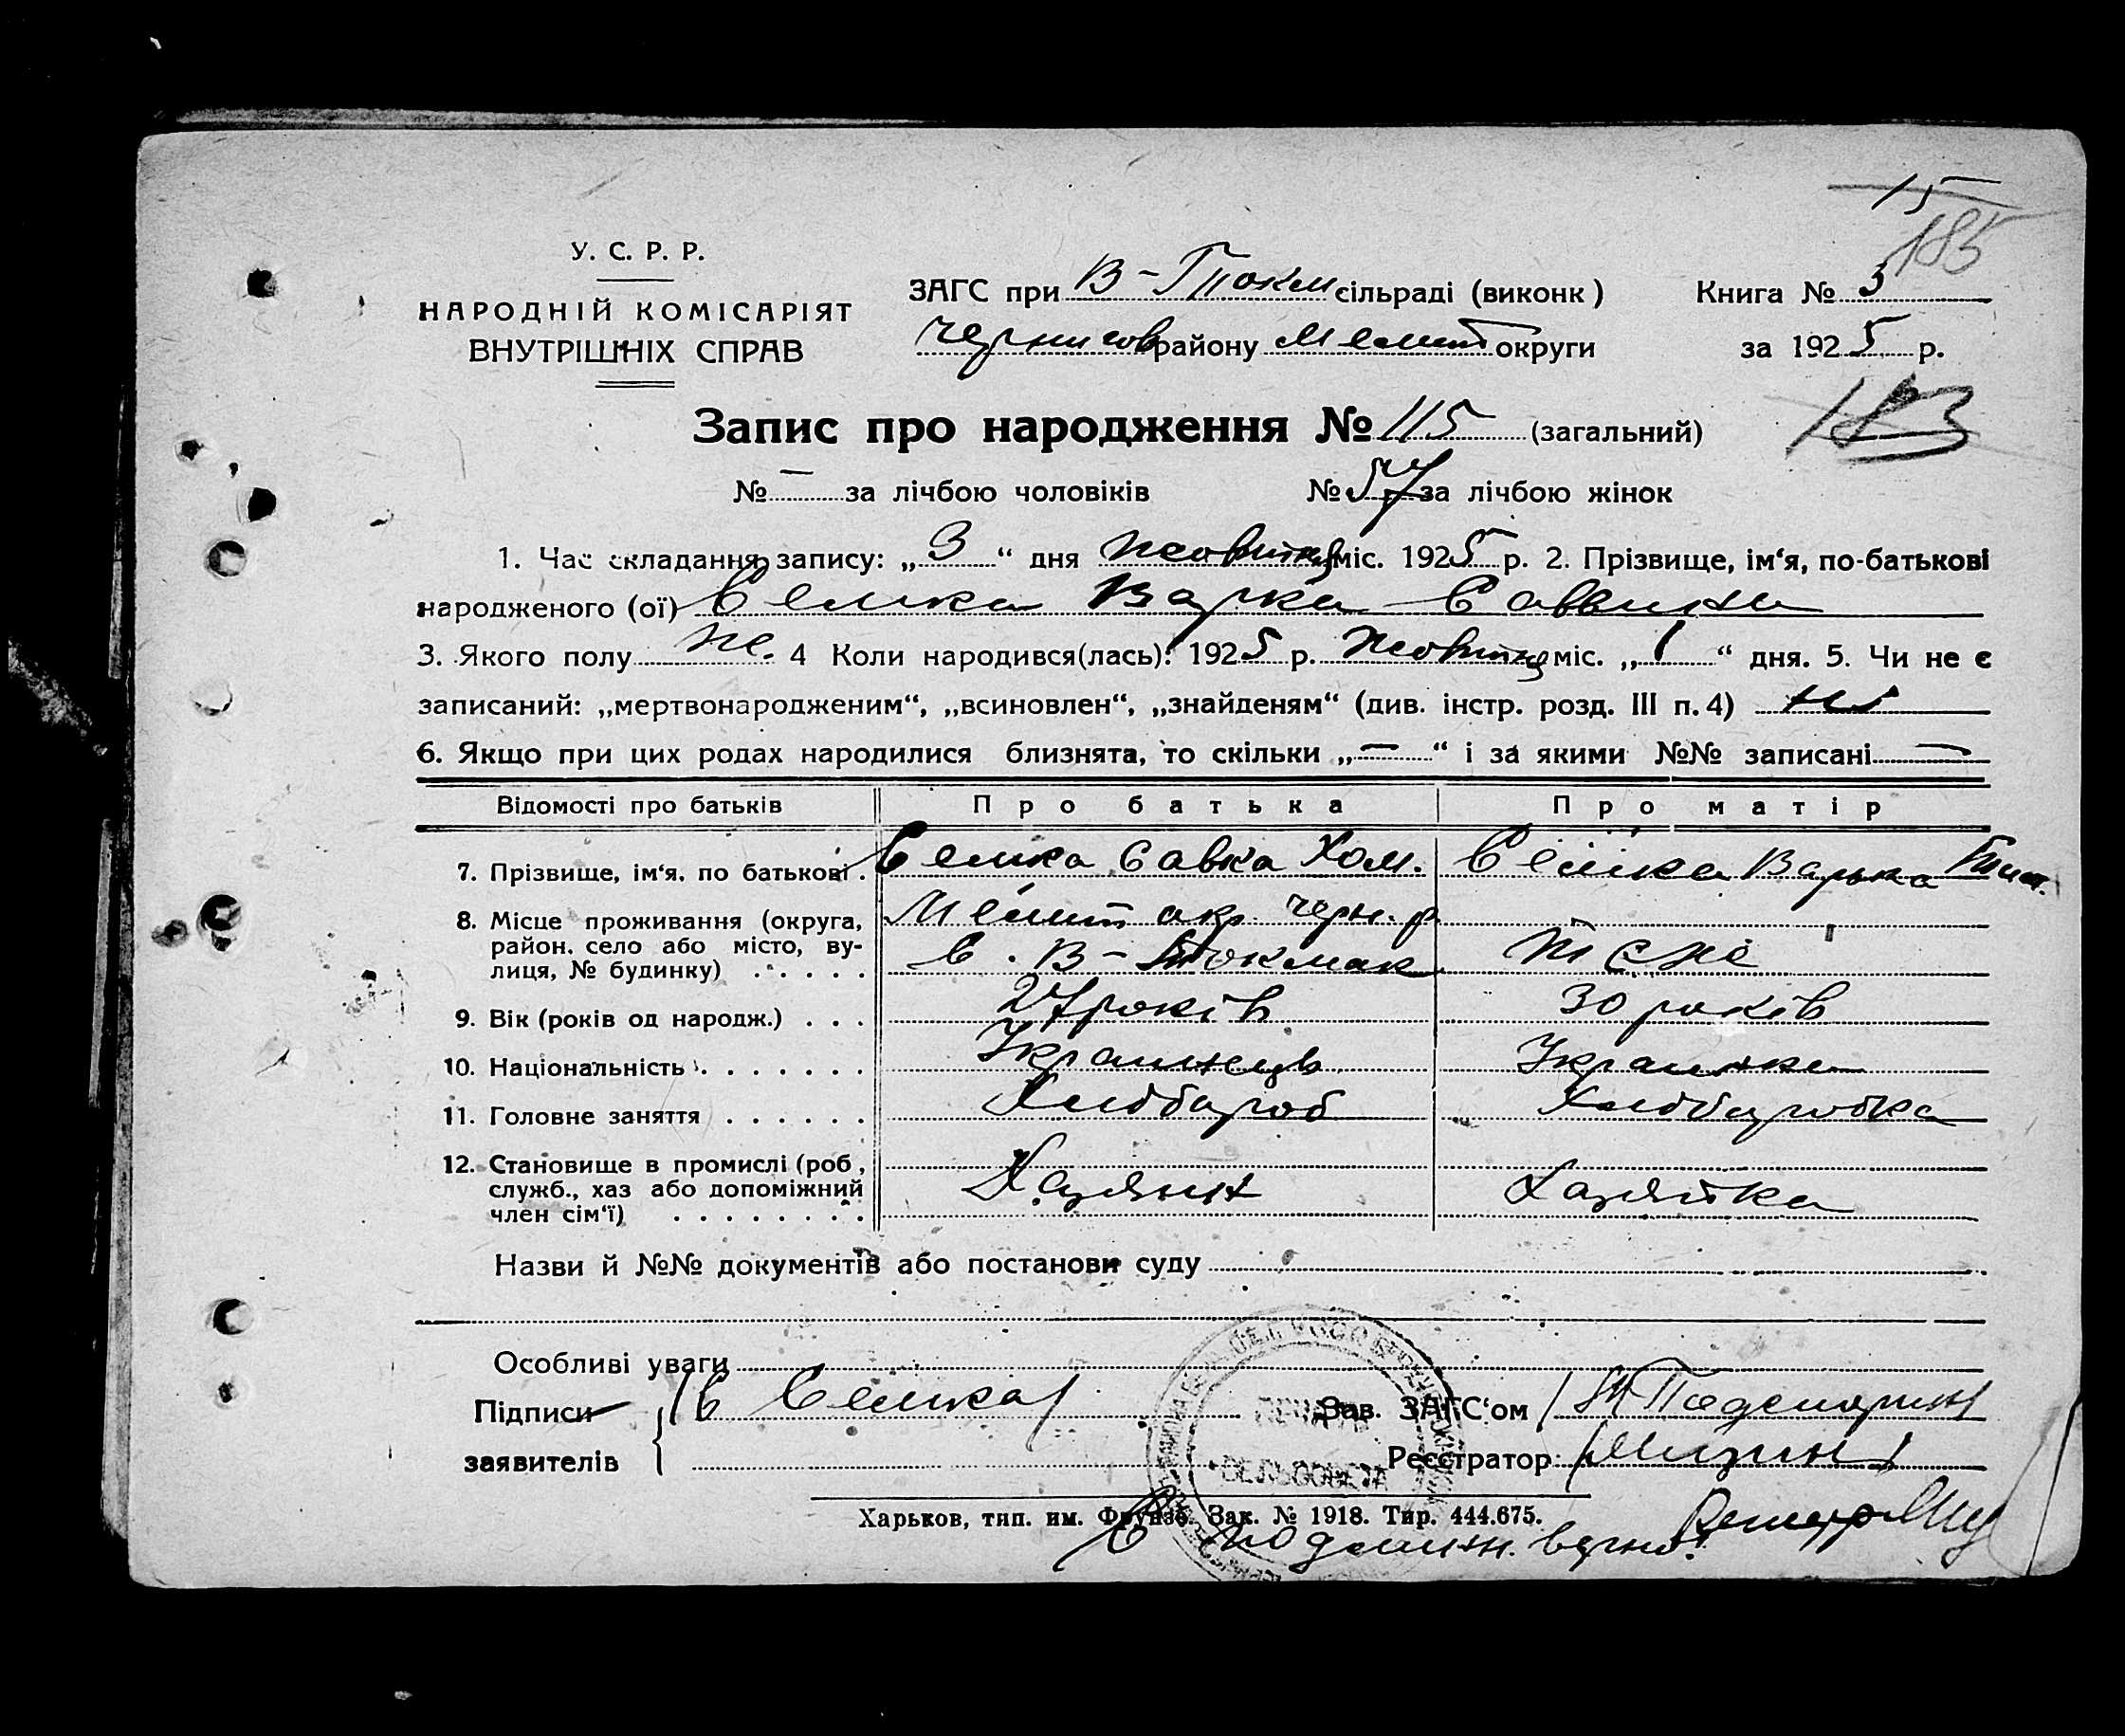 15
185
У. С. Р. Р.
НАРОДНІЙ КОМІСАРІЯТ
ВНУТРІШНІХ СПРАВ
ЗАГС при В-Токм сільраді (виконк) Книга № 3
Чернигов району Мелит округи за 1925 р.
Запис про народження № 115 (загальний)
183
№ — за лічбою чоловіків № 57 за лічбою жінок
1. Час складання запису: „3“ дня жовтня міс. 1925 р. 2. Прізвище, ім‘я, по-батькові
народженого (ої) Семка Варка Саввична
3. Якого полу ж. 4 Коли народився(лась): 1925 р. жовтня міс. „1“ дня. 5. Чи не є
записаний: „мертвонародженим“, „всиновлен“, „знайденям“ (див. інстр. розд. III п. 4) ні
6. Якщо при цих родах народилися близнята, то скільки „—“ і за якими №№ записані —
Відомості про батьків Про батька Про матір
7. Прізвище, ім‘я, по батькові . Семка Савка Хом. Семка Варька
8. Місце проживання (округа, Меліт окр. Черн. р
район, село або місто, ву- с. В-Токмак теж
лиця, № будинку) . . . . .
9. Вік (років од народж.) . . . 27 років 30 років
10. Національність . . . . . . . Українець Українка
11. Головне заняття . . . . . . Хлібороб Хліборобка
12. Становище в промислі (роб,
служб., хаз або допоміжний Хазяин Хазяйка
член сім‘ї) . . . . . . . .
Назви й №№ документів або постанови суду
Особливі уваги
Підписи С Семка Зав. ЗАГС‘ом
заявителів Реєстратор: Мизин
СЕЛЬСОВЕТА
Харьков, тип. им. Фрунзе. Зак. № 1918. Тир. 444.675.
С подлин. верно: